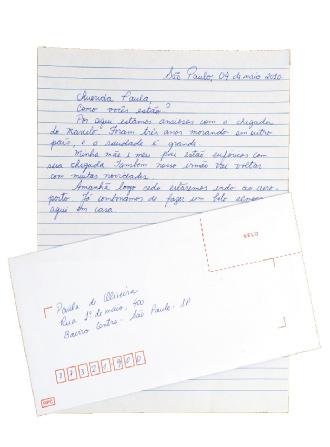 São Paulo, 04 de maio 2010
Querida Paula,
Como vocês estão?
Por aqui estamos ansiosos com a chegada
de Marcelo. Foram três anos morando em outro
país, e a saudade é grande.
Minha mãe e meu pai estão eufóricos com
sua chegada. Também nosso irmão vai voltar
com muitas novidades.
Amanhã logo cedo estaremos indo ao aero-
porto. Já combinamos de fazer um belo almoço
aqui em casa.
SELO
Paula de Oliveira
Rua 1º de maio, 400
Bairro Centro - São Paulo - SP